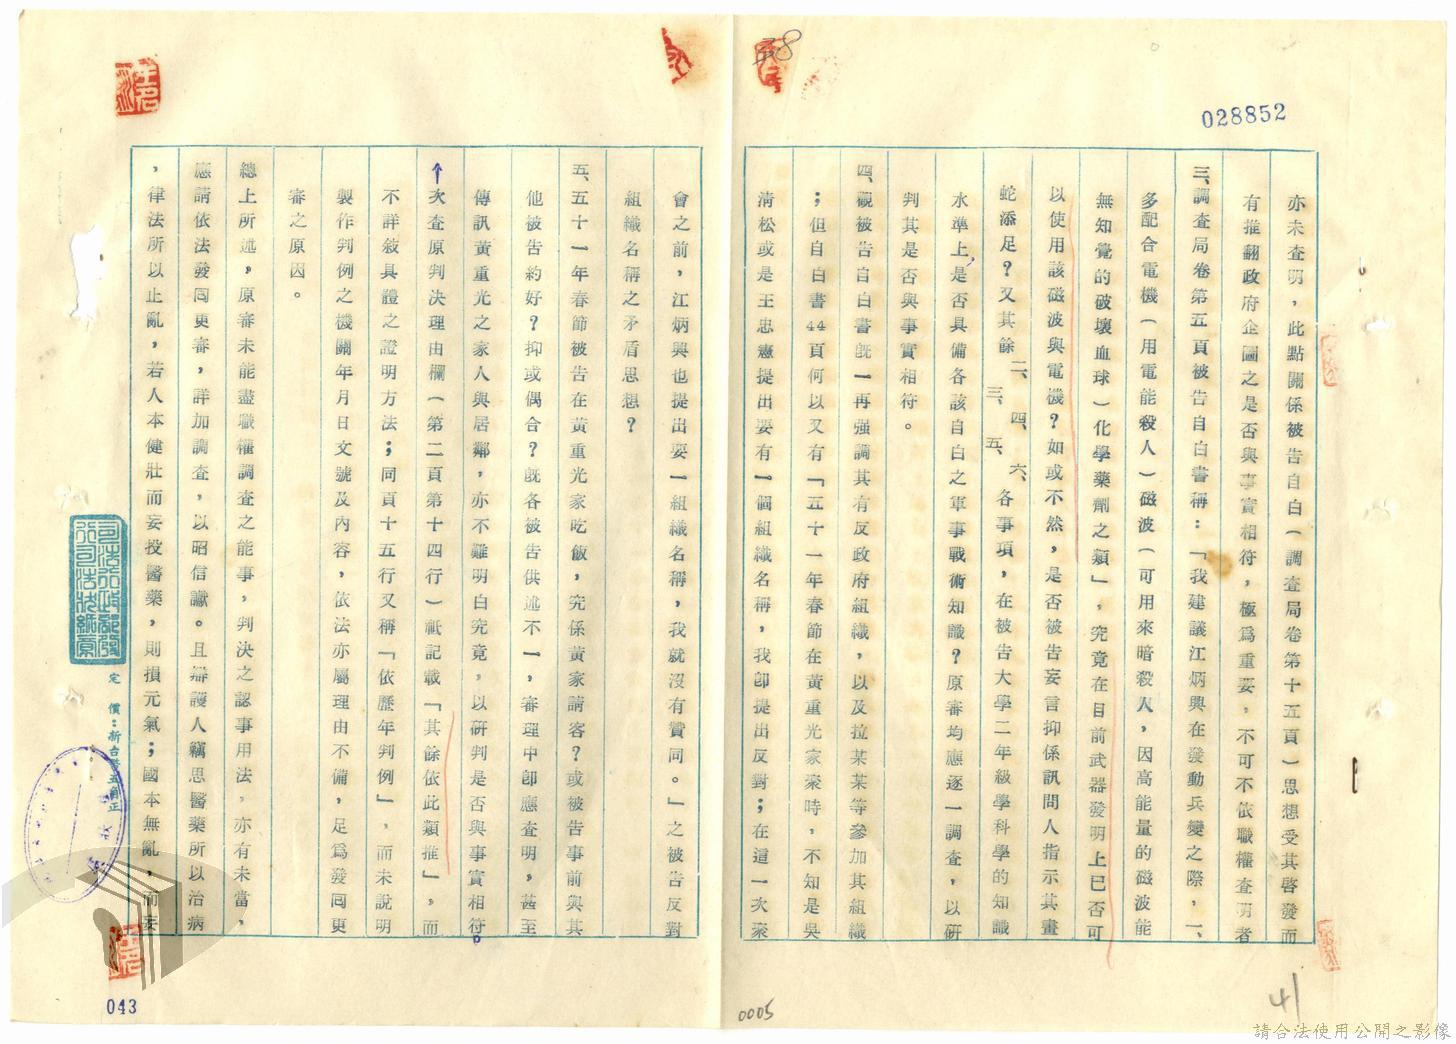 38
028852
亦未查明，此點關係被告自白（調查局卷第十五頁）思想受其啓發而
有推翻政府企圖之是否與事實相符，極爲重要，不可不依職權查明者
三、調查局卷第五頁被告自白書稱：「我建議江炳興在發動兵變之際，一、
多配合電機（用電能殺人）磁波（可用來暗殺人，因高能量的磁波能
無知覺的破壞血球）化學藥劑之類」，究竟在目前武器發明上已否可
以使用該磁波與電機？如或不然，是否被告妄言抑係訊問人指示其畫
蛇添足？又其餘二、三、四、五、六、各事項，在被告大學二年級學科學的知識
水準上，是否具備各該自白之軍事戰術知識？原審均應逐一調查，以研
判其是否與事實相符。
四、觀被告自白書旣一再強調其有反政府組織，以及拉某某等參加其組織
；但自白書44頁何以又有「五十一年春節在黃重光家豪時，不知是吳
淸松或是王忠憲提出要有一個組織名稱，我卽提出反對；在這一次豪
會之前，江炳興也提出要一組織名稱，我就沒有贊同。」之被告反對
組織名稱之矛盾思想？
五、五十一年春節被告在黃重光家吃飯，究係黃家請客？或被告事前與其
他被告約好？抑或偶合？旣各被告供述不一，審理中卽應查明，甚至
傳訊黃重光之家人與居鄰，亦不難明白究竟，以硏判是否與事實相符。
次查原判決理由欄（第二頁第十四行）祇記載「其餘依此類推」，而
不詳敘具體之證明方法；同頁十五行又稱「依歷年判例」，而未說明
製作判例之機關年月日文號及內容，依法亦屬理由不備，足爲發回更
審之原因。
總上所述，原審未能盡職權調查之能事，判決之認事用法，亦有未當，
應請依法發回更審，詳加調查，以昭信讞。且辯護人竊思醫藥所以治病
，律法所以止亂，若人本健壯而妄投醫藥，則損元氣；國本無亂，而妄
司法行政部發
行司法狀紙章
定價：新台幣五角正
043
0005
41
請合法使用公開之影像